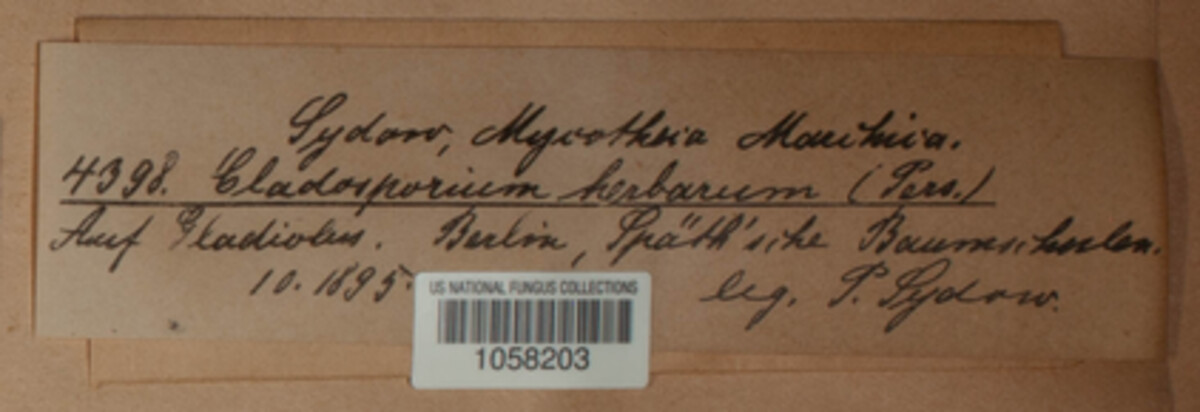 Sydow, Mycotheca Marchica.
4398. Cladosporium herbarum (Pers.)
Auf Gladiolus. Berlin, Späth'sche Baumschulen.
10.1895. leg. P. Sydow.
US NATIONAL FUNGUS COLLECTIONS
1058203